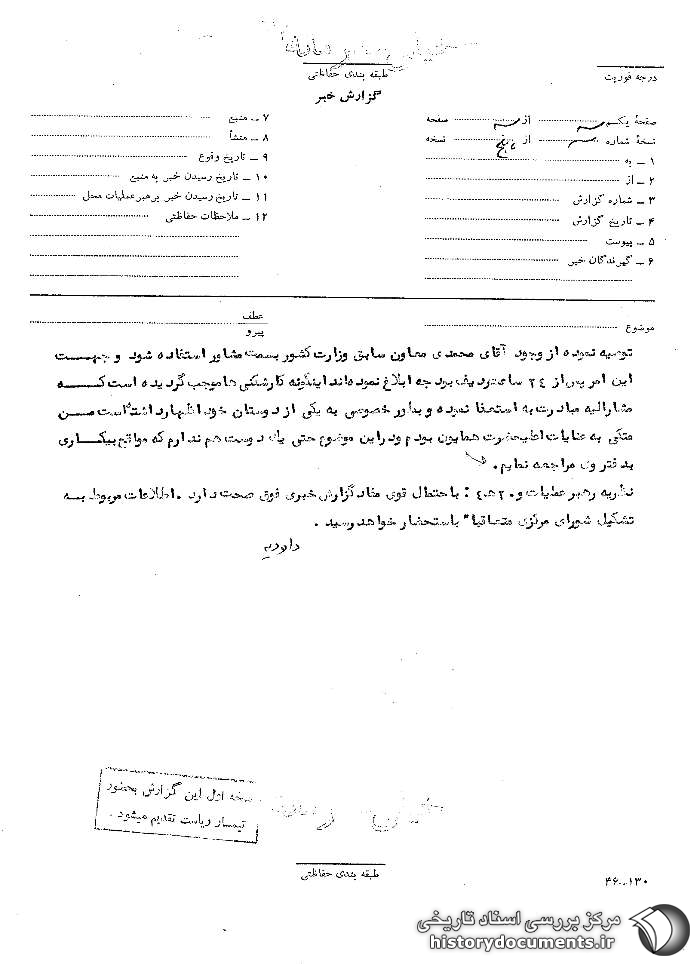 طبقه بندی حفاظتی
درجه فوریت
گزارش خبر
صفحهٔ یکم از صفحه
نسخهٔ شماره از پنج نسخه
۱ ـ به
۲ ـ از
۳ ـ شماره گزارش
۴ ـ تاریخ گزارش
۵ ـ پیوست
۶ ـ گیرندگان خبر
۷ ـ منبع
۸ ـ منشأ
۹ ـ تاریخ وقوع
۱۰ ـ تاریخ رسیدن خبر به منبع
۱۱ ـ تاریخ رسیدن خبر برهبر عملیات محل
۱۲ ـ ملاحظات حفاظتی
موضوع
عطف
پیرو
توصیه نموده از وجود آقای محمدی معاون سابق وزارت کشور بسمت مشاور استفاده شود و جهت
این امر پس از ۲٤ ساعت ردیف بودجه ابلاغ نموده‌اند اینگونه کارشکنی ها موجب گردیده است که
مشارالیه مبادرت به استعفا نموده و بطور خصوصی به یکی از دوستان خود اظهار داشته است من
متکی به عنایات اعلیحضرت همایون بودم و در این موضوع حتی یک دوست هم ندارم که مواقع بیکاری
بدفتر وی مراجعه نمایم .
نظریه رهبر عملیات و ۲۰ ه‍ ٤ : با احتمال قوی مفاد گزارش خبری فوق صحت دارد . اطلاعات مربوط به
تشکیل شورای مرکزی متعاقبا" باستحضار خواهد رسید .
نسخه اول این گزارش بحضور
تیمسار ریاست تقدیم میشود .
طبقه بندی حفاظتی
۴۶ـ۱۳۰
مرکز بررسی اسناد تاریخی
historydocuments.ir